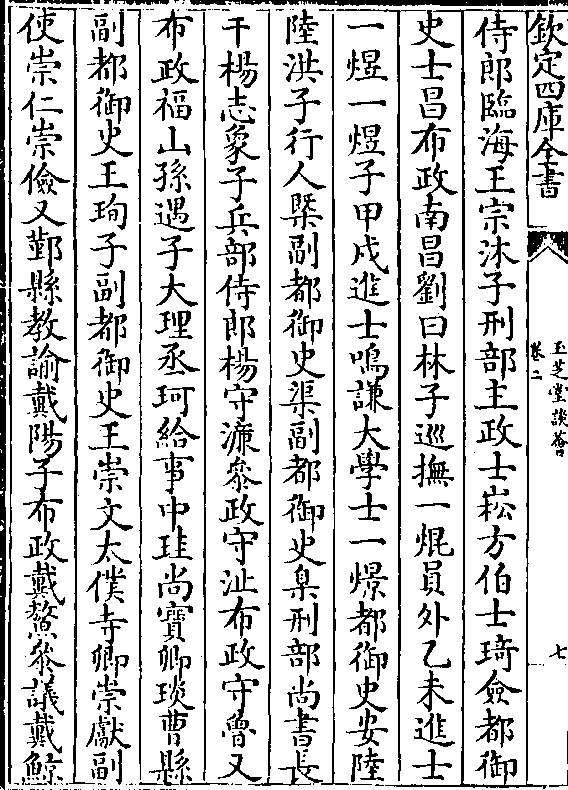 欽定四庫全書
玉芝堂談薈
卷二
七
侍郎臨海王宗沐子刑部主政士崧方伯士琦僉都御
史士昌布政南昌劉曰材子巡撫一焜員外乙未進士
一煜一煜子甲戌進士鳴謙大學士一燝都御史安陸
陸洪子行人㮣副都御史渠副都御史臬刑部尚書長
干楊志象子兵部侍郎楊守濂叅政守沚布政守魯又
布政福山孫遇子大理丞珂給事中珪尚寶卿琰曹縣
副都御史王珣子副都御史王崇文太僕寺卿崇獻副
使崇仁崇儉又鄞縣教諭戴陽子布政戴鰲叅議戴鯨